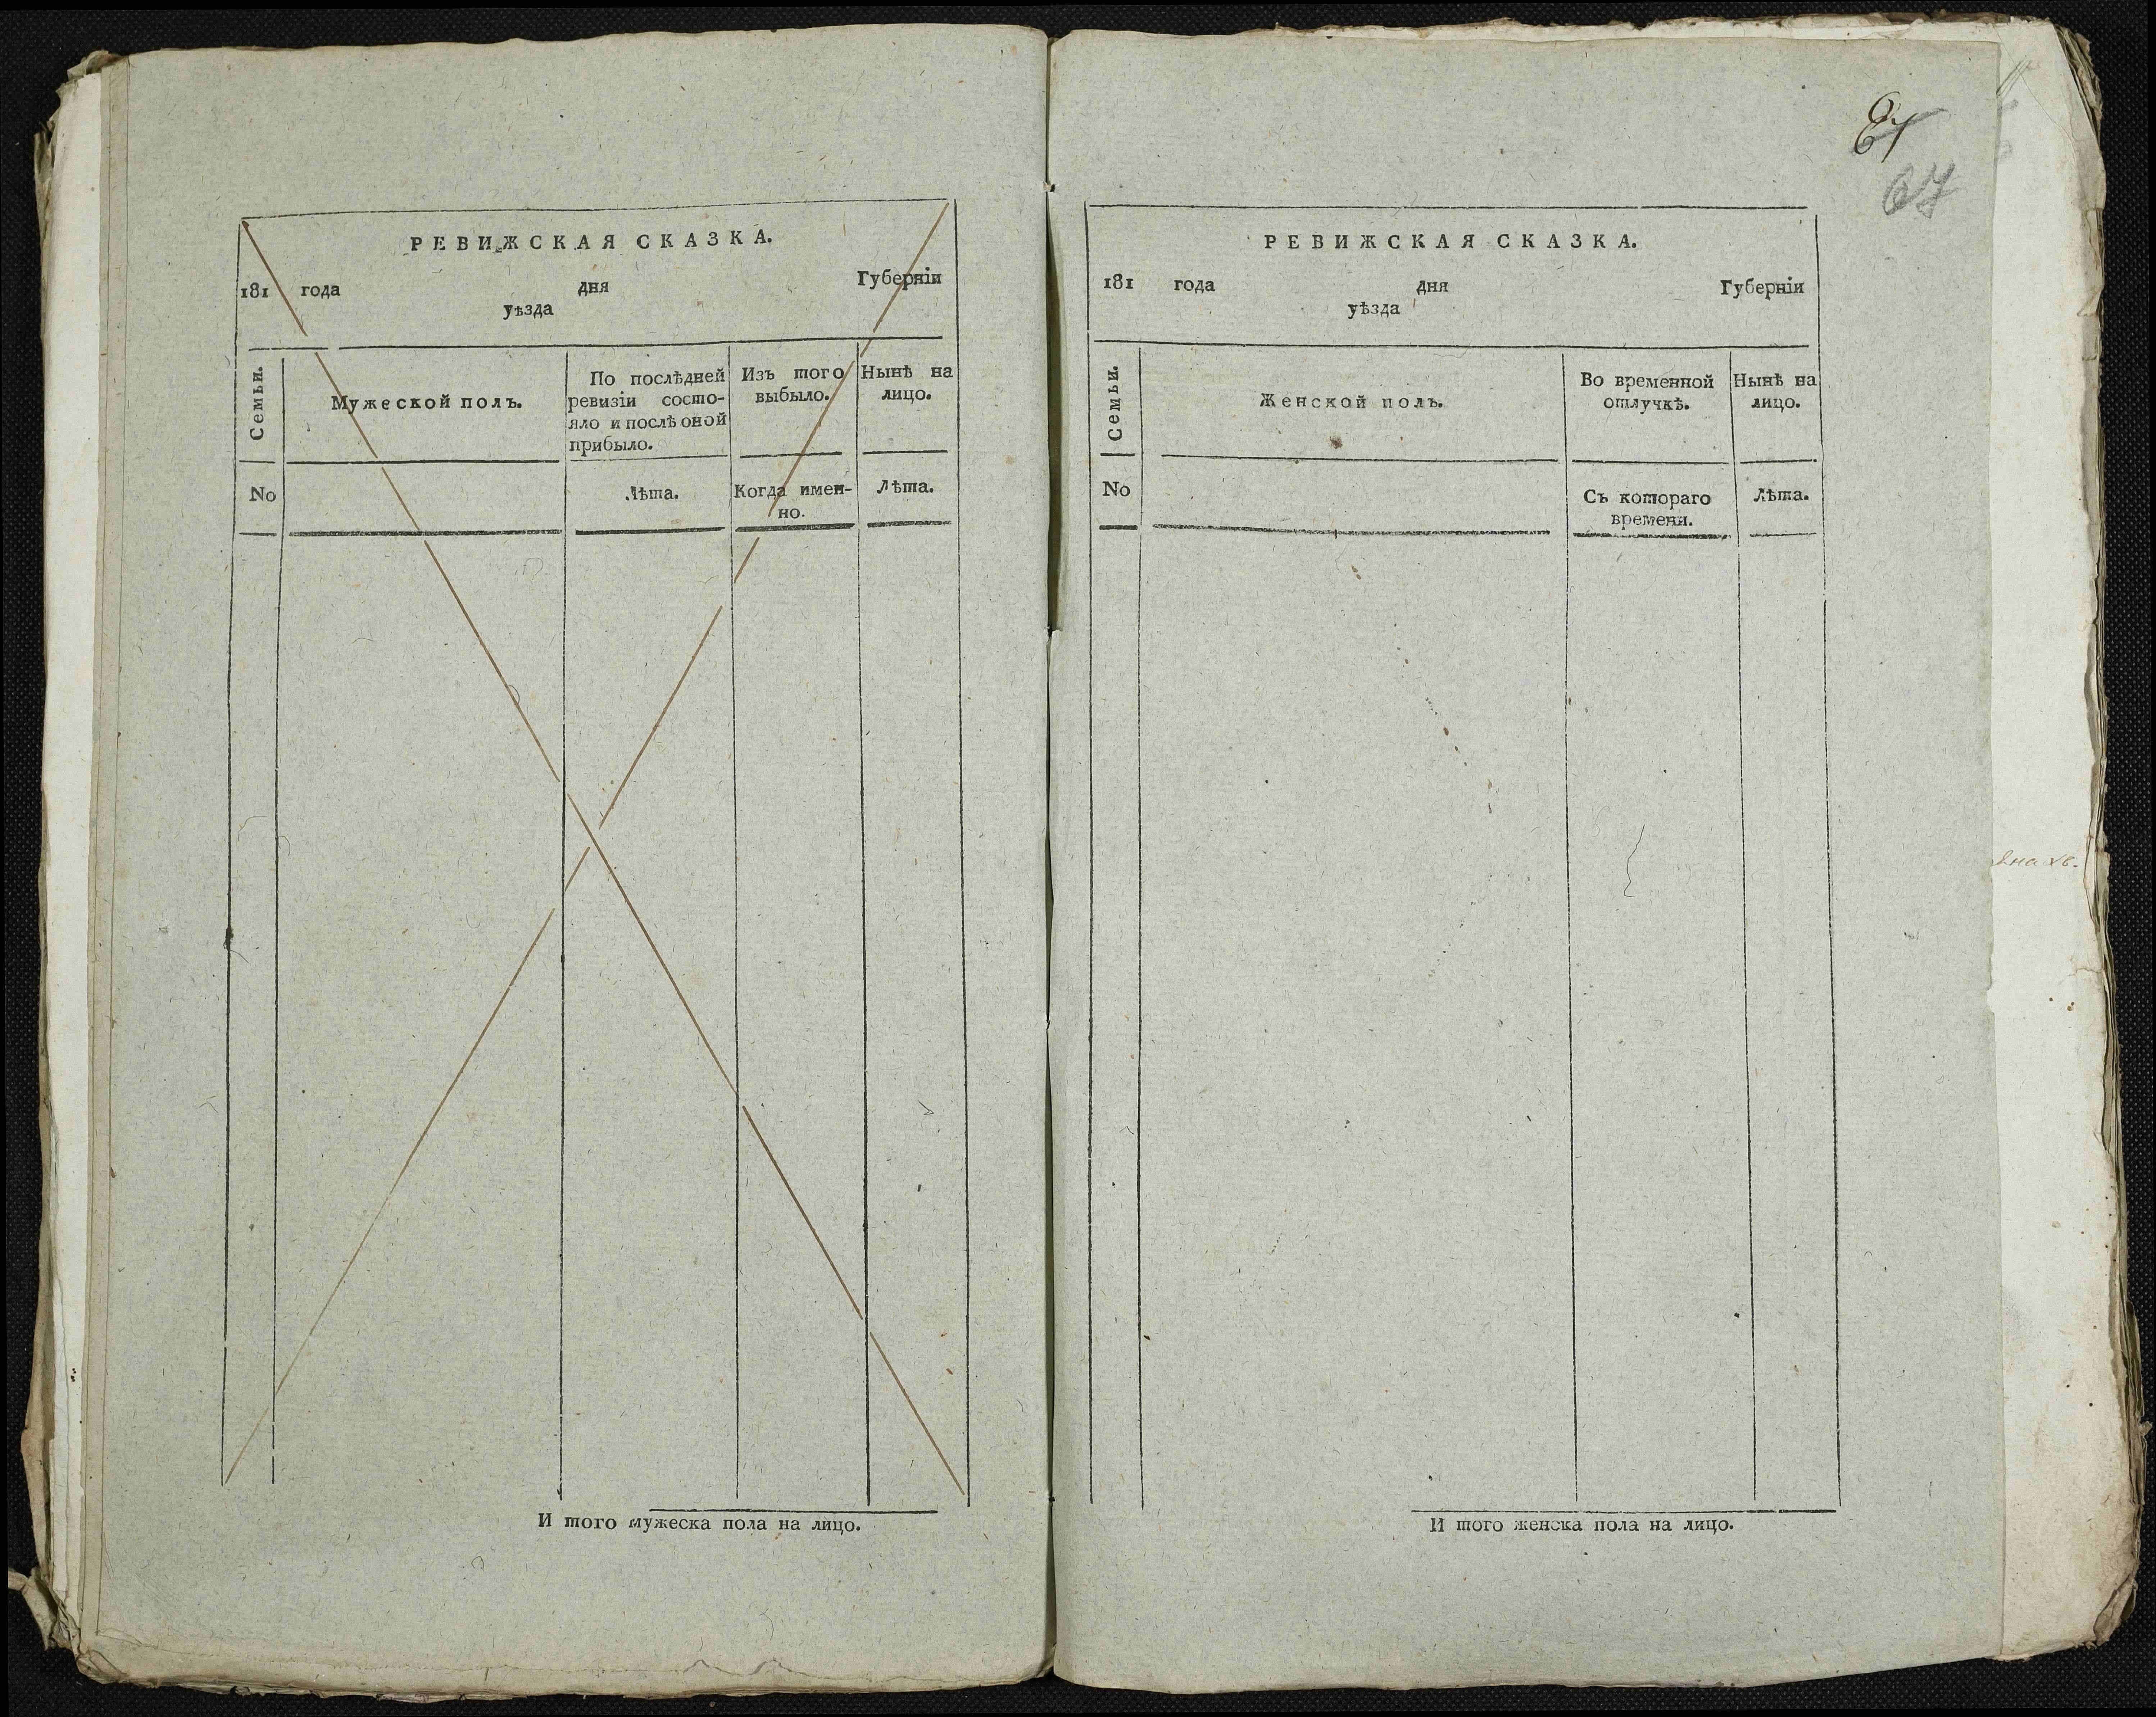 РЕВИЖСКАЯ СКАЗКА.
181 года дня Губерніи
уѣзда
Семьи.
Мужеской полъ.
По послѣдней
ревизіи состо-
яло и послѣ оной
прибыло.
Изъ того
выбыло.
Нынѣ на
лицо.
No
Лѣта.
Когда имен-
но.
Лѣта.
И того мужеска пола на лицо.
67
67
РЕВИЖСКАЯ СКАЗКА.
181 года дня Губерніи
уѣзда
Семьи.
Женской полъ.
Во временной
отлучкѣ.
Нынѣ на
лицо.
No
Съ котораго
времени.
Лѣта.
И того женска пола на лицо.